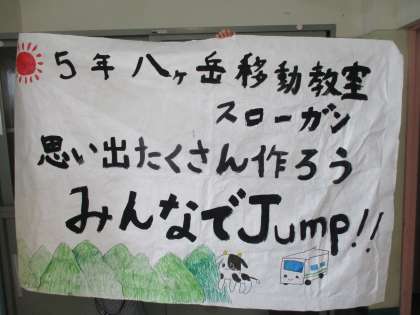 5年八ヶ岳移動教室
スローガン
思い出たくさん作ろう
みんなでJump!!